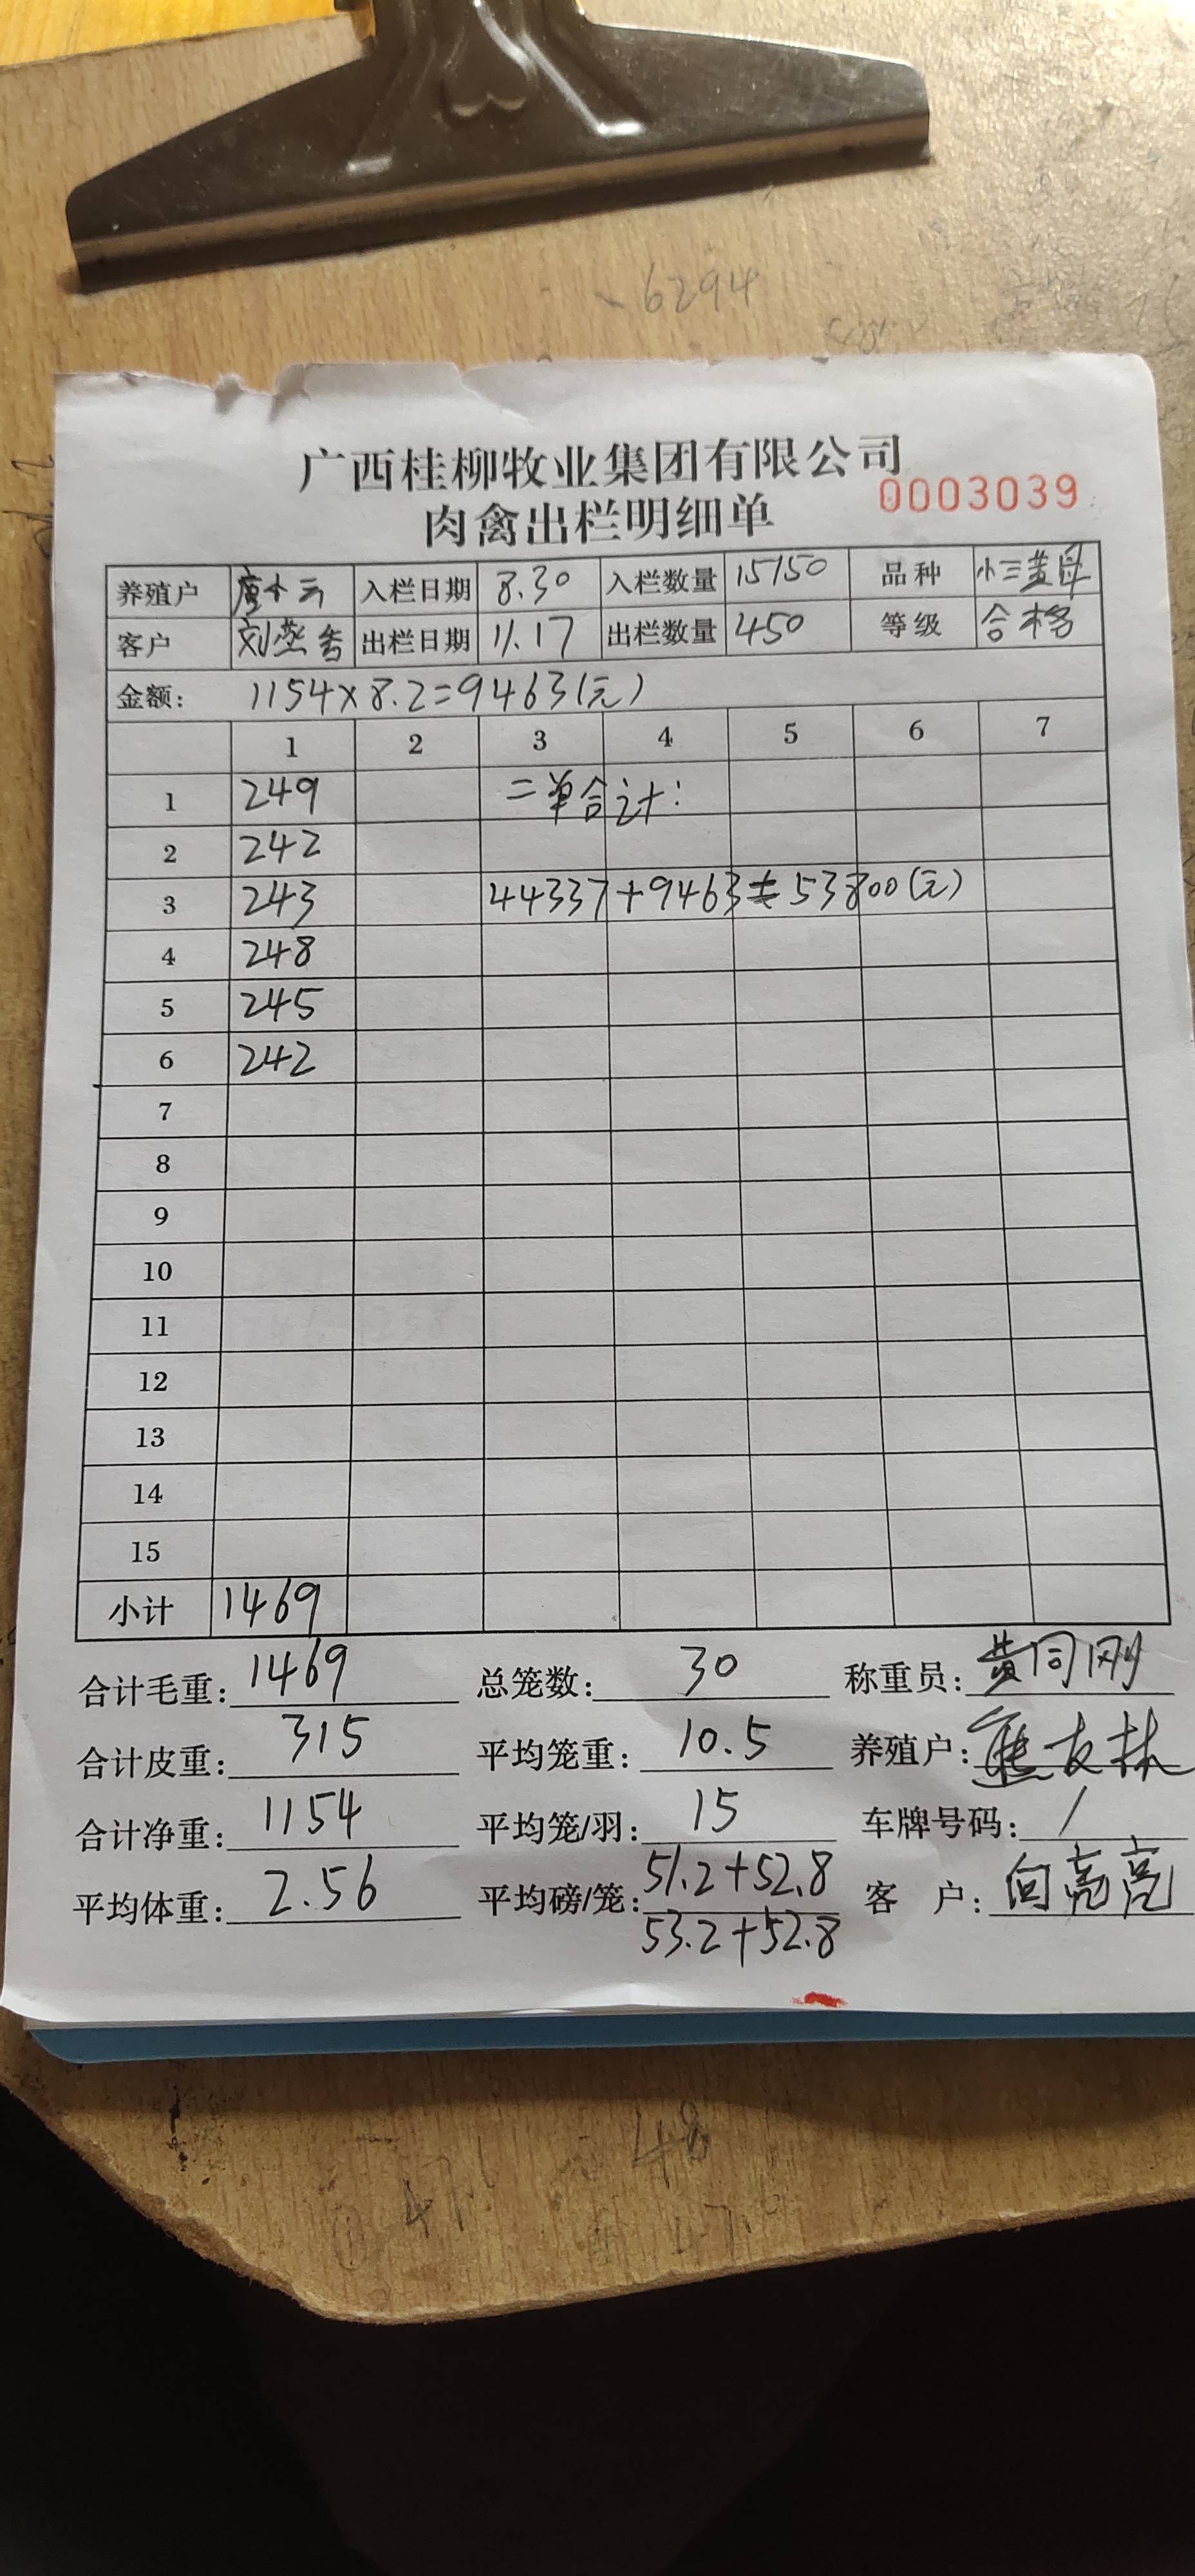 6294
广西桂柳牧业集团有限公司
0003039
肉禽出栏明细单
养殖户 唐小云 入栏日期 8.30 入栏数量 15150 品种 小三黄母
客户 刘燕香 出栏日期 11.17 出栏数量 450 等级 合格
金额: 1154×8.2=9463(元)
1 2 3 4 5 6 7
1 249 二单合计:
2 242
3 243 44337+9463=53800(元)
4 248
5 245
6 242
7
8
9
10
11
12
13
14
15
小计 1469
合计毛重: 1469 总笼数: 30 称重员: 黄同刚
合计皮重: 315 平均笼重: 10.5 养殖户: 熊友林
合计净重: 1154 平均笼/羽: 15 车牌号码: /
平均体重: 2.56 平均磅/笼: 51.2+52.8 客 户: 向亮亮
53.2+52.8
48